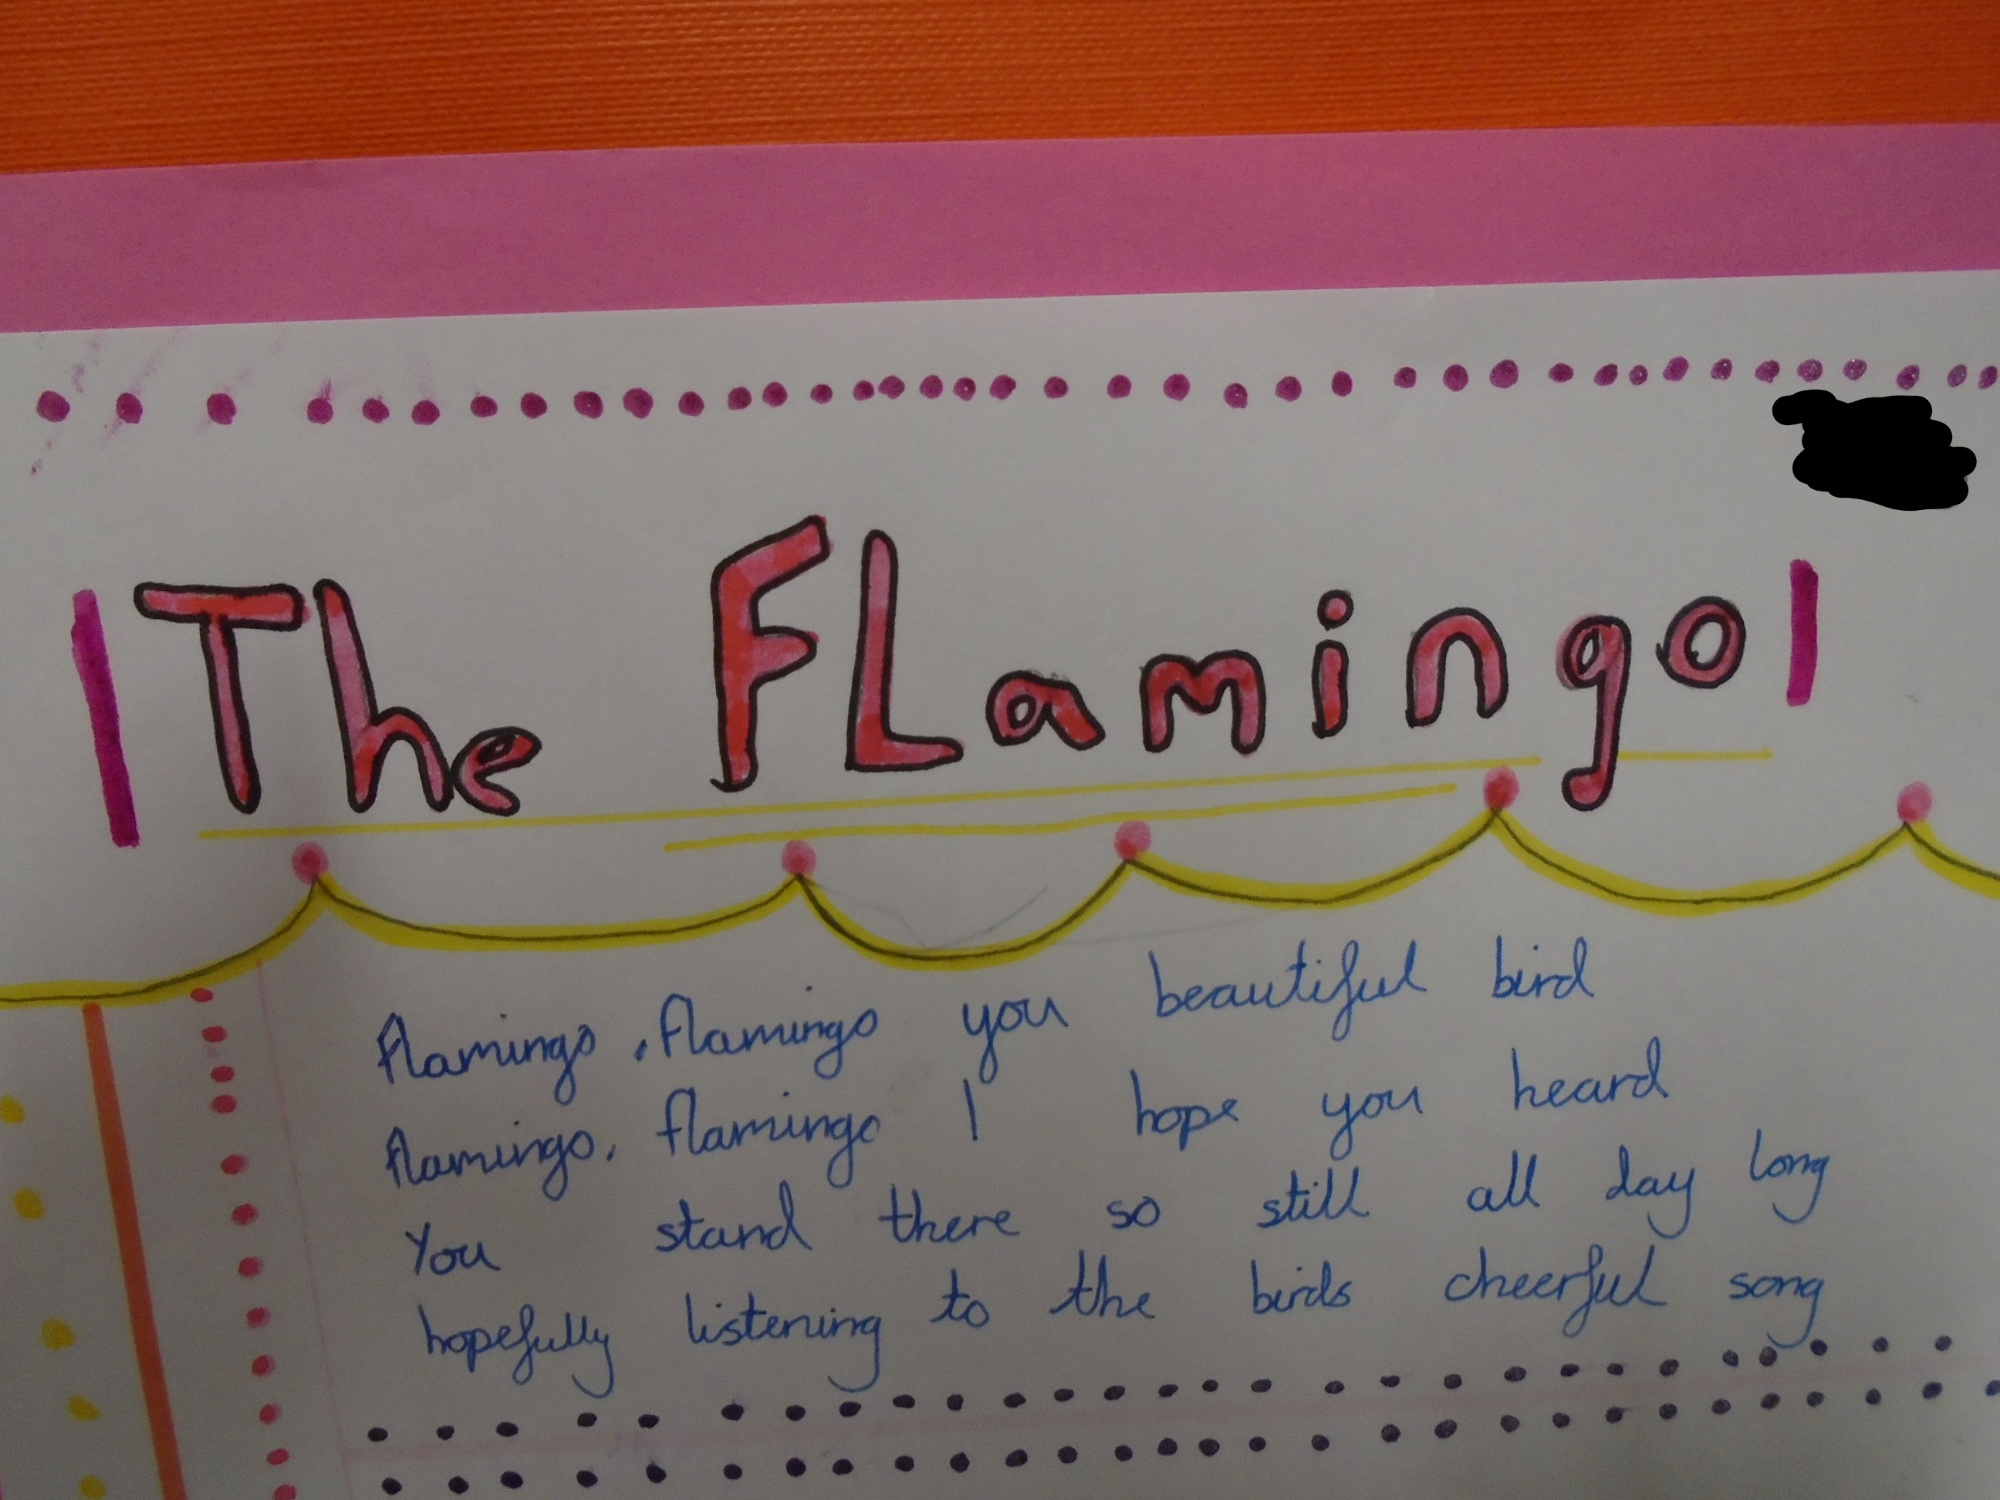 The FLamingo
flamingo, flamingo you beautiful bird
flamingo, flamingo I hope you heard
You stand there so still all day long
hopefully listening to the birds cheerful song